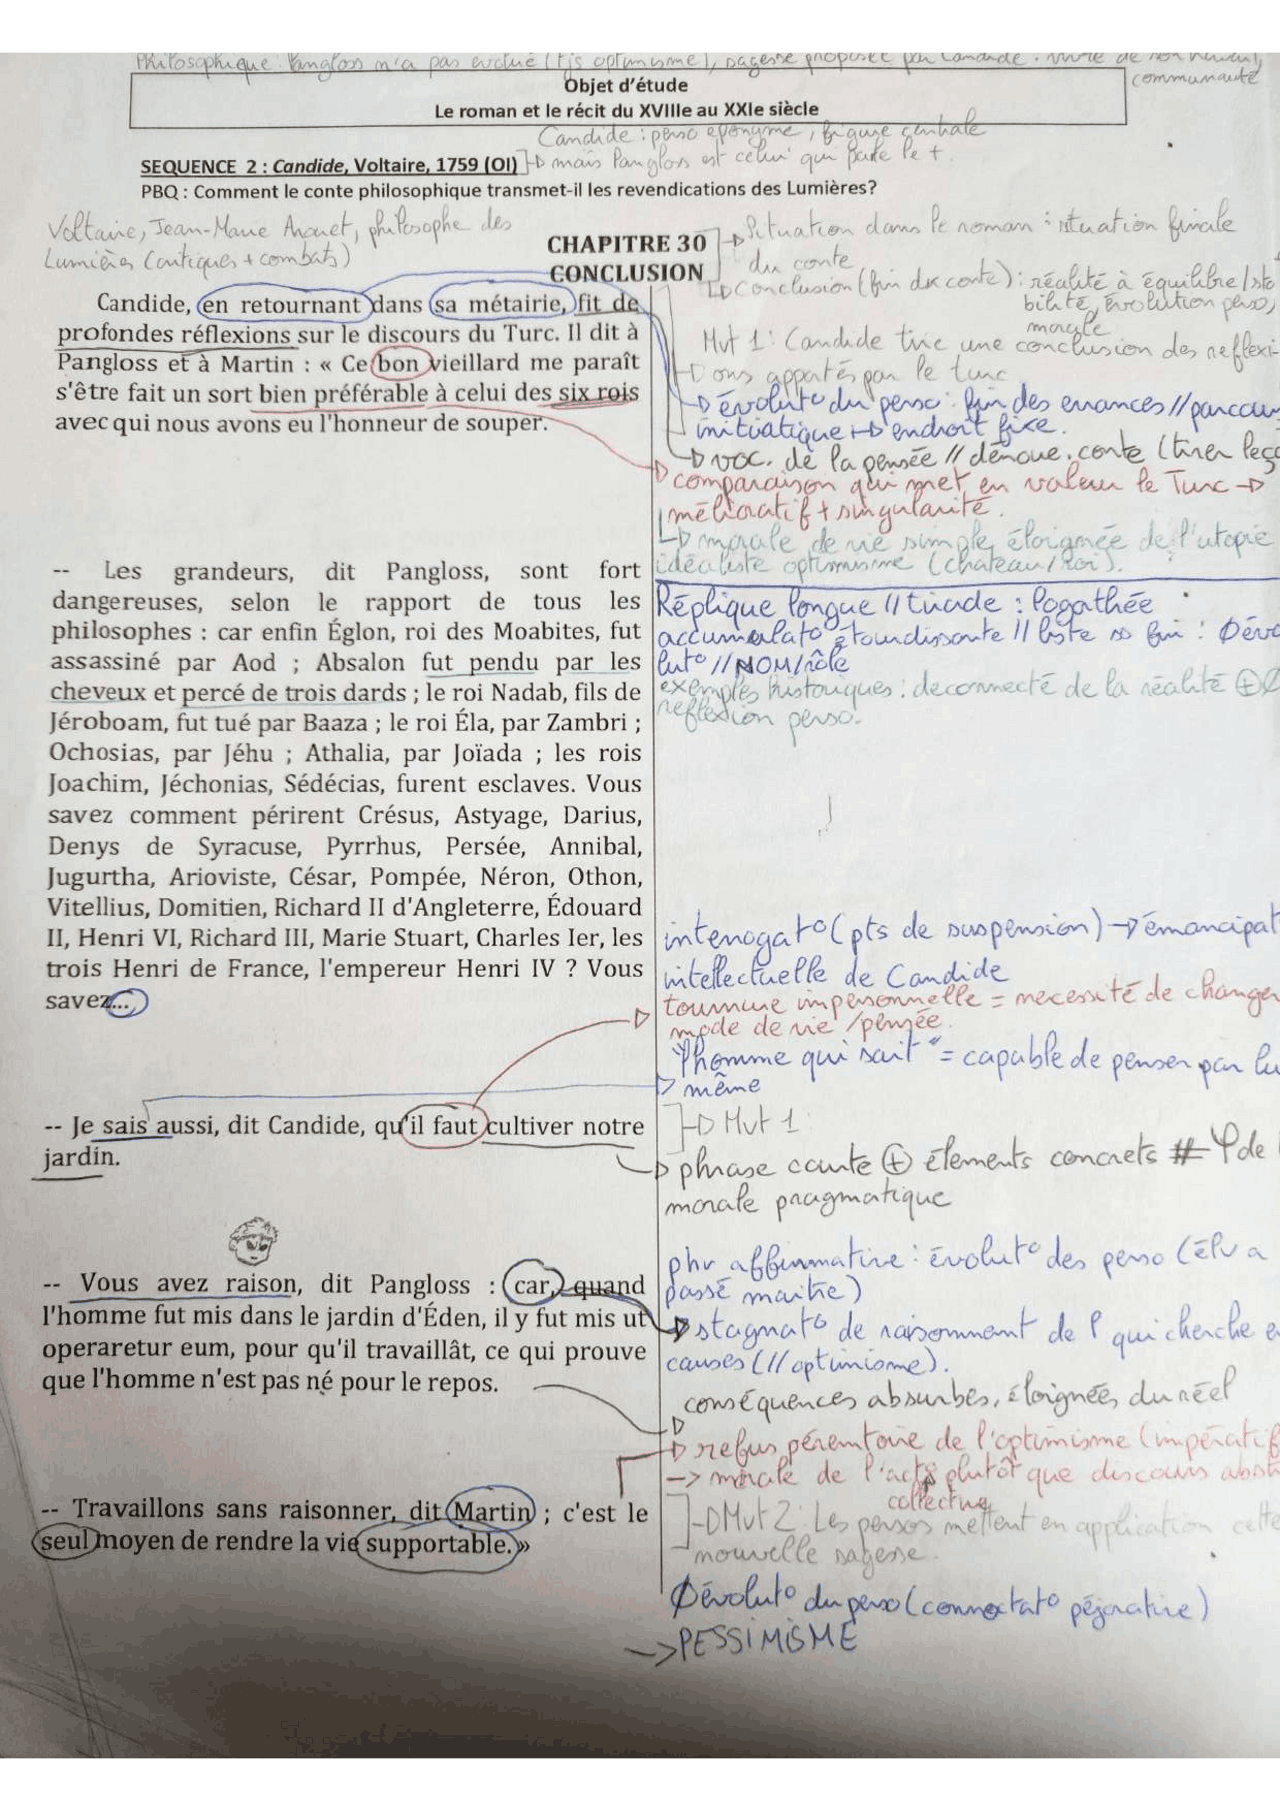 Philosophique : Pangloss n'a pas évolué (tjs optimisme), sagesse proposée par Candide : vivre de son travail,
communauté
Objet d'étude
Le roman et le récit du XVIIIe au XXIe siècle
Candide : perso éponyme, figure centrale
SEQUENCE 2 : Candide, Voltaire, 1759 (OI) mais Pangloss est celui qui parle le +.
PBQ : Comment le conte philosophique transmet-il les revendications des Lumières?
Voltaire, Jean-Marie Arouet, philosophe des
Lumières (critiques + combats)
CHAPITRE 30
CONCLUSION
Situation dans le roman : situation finale
du conte
Conclusion (fin du conte) : réalité à équilibre/sta
bilité, évolution perso,
morale
Candide, en retournant dans sa métairie, fit de
profondes réflexions sur le discours du Turc. Il dit à
Pangloss et à Martin : « Ce bon vieillard me paraît
s'être fait un sort bien préférable à celui des six rois
avec qui nous avons eu l'honneur de souper.
Mvt 1 : Candide tire une conclusion des reflexi-
ons apportés par le turc
évoluto du perso : fin des errances // parcours
initiatique endroit fixe.
voc. de la pensée // dénoue. conte (tirer leço
comparaison qui met en valeur le Turc
mélioratif + singularité.
morale de vie simple, éloignée de l'utopie
idéaliste optimisme (chateau/Roi).
-- Les grandeurs, dit Pangloss, sont fort
dangereuses, selon le rapport de tous les
philosophes : car enfin Églon, roi des Moabites, fut
assassiné par Aod ; Absalon fut pendu par les
cheveux et percé de trois dards ; le roi Nadab, fils de
Jéroboam, fut tué par Baaza ; le roi Éla, par Zambri ;
Ochosias, par Jéhu ; Athalia, par Joïada ; les rois
Joachim, Jéchonias, Sédécias, furent esclaves. Vous
savez comment périrent Crésus, Astyage, Darius,
Denys de Syracuse, Pyrrhus, Persée, Annibal,
Jugurtha, Arioviste, César, Pompée, Néron, Othon,
Vitellius, Domitien, Richard II d'Angleterre, Édouard
II, Henri VI, Richard III, Marie Stuart, Charles Ier, les
trois Henri de France, l'empereur Henri IV ? Vous
savez...
Réplique longue // tirade : logathée
accumulato étourdissante // liste ∞ fin : Ø évo
luto // NOM/rôle
exemples historiques : deconnecté de la réalité ⊕ Ø
reflexion perso.
interrogato (pts de suspension) → émancipat
intellectuelle de Candide
tournure impersonnelle = necessité de changer
mode de vie / pensée.
"l'homme qui sait" = capable de penser par lu
même
-- Je sais aussi, dit Candide, qu'il faut cultiver notre
jardin.
Mvt 1
phrase courte ⊕ élements concrets # φ de
morale pragmatique
-- Vous avez raison, dit Pangloss : car, quand
l'homme fut mis dans le jardin d'Éden, il y fut mis ut
operaretur eum, pour qu'il travaillât, ce qui prouve
que l'homme n'est pas né pour le repos.
phr affirmative : évoluto des perso (élv a
passé maitre)
stagnato de raisonnement de P qui cherche
causes (// optimisme).
conséquences absurbes, éloignées du réel
refus péremtoire de l'optimisme (impératif
-> morale de l'acto plutôt que discours abst
collective
-- Travaillons sans raisonner, dit Martin ; c'est le
seul moyen de rendre la vie supportable.»
Mvt 2 : Les persos mettent en application cette
nouvelle sagesse.
Ø évoluto du perso (connotato péjorative)
-> PESSIMISME